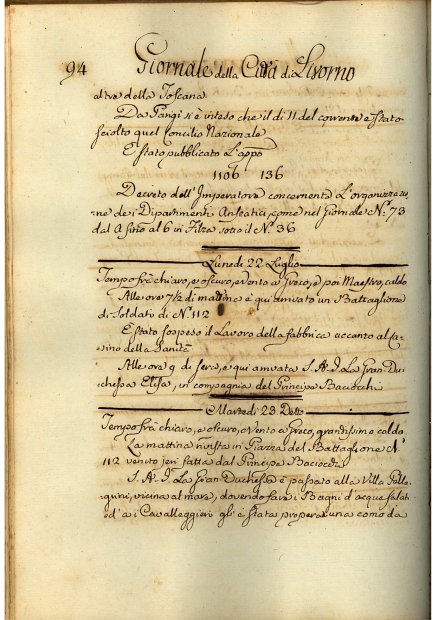 94 Giornale della Città di Livorno
altre della Toscana
Da Parigi si è inteso che il di 11 del corrente è stato
sciolto quel Concilio Nazionale
E stato pubblicato L'app.o
1106 136
Decreto dell'Imperatore concernente L'organizzazio
ne dei Dipartimenti Anseatici, come nel Giornale N.o 73
dal A fino al 6 in Filza sotto il N.o 36
Lunedi 22 Luglio
Tempo frà chiaro, e oscuro, e Vento a Greco, e poi Maestro, caldo
Alle ore 7½ di mattina è qui arrivato un Battaglione
di Soldati di N.o 112
E stato sospeso il Lavoro della fabbrica accanto al Ca
sino della Sanità
Alle ore 9 di sera, è qui arrivata S. A. I. La Gran-Du
chessa Elisa, in compagnia del Principe Baciocchi
Martedi 23 Detto
Tempo frà chiaro, e oscuro, Vento a Greco, grandissimo caldo
La mattina rivista in Piazza del Battaglione N.o
112 venuto jeri fatta dal Principe Baciocchi
S. A. I. La Gran-Duchessa è passata alla Villa Palle
quini, vicina al mare, dovendo fare i Bagni d'acqua salat
ed'a i Cavalleggieri gl'è stata preparat una comoda